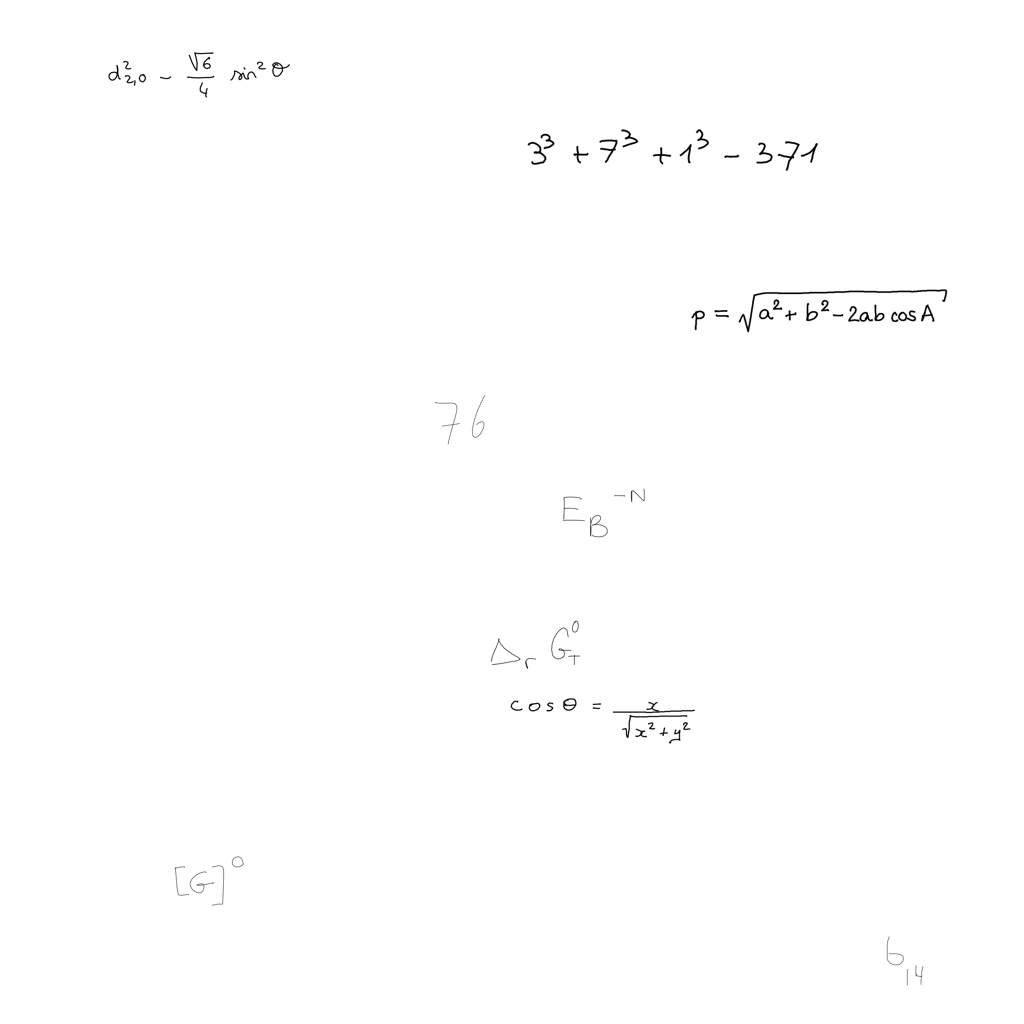 d²₂,₀ − √6/4 sin² θ
3³ + 7³ + 1³ − 371
p = √(a² + b² − 2ab cos A)
76
E_B^−N
Δ_r G_T^0
cos θ = x/√(x² + y²)
[G]^0
6₁₄